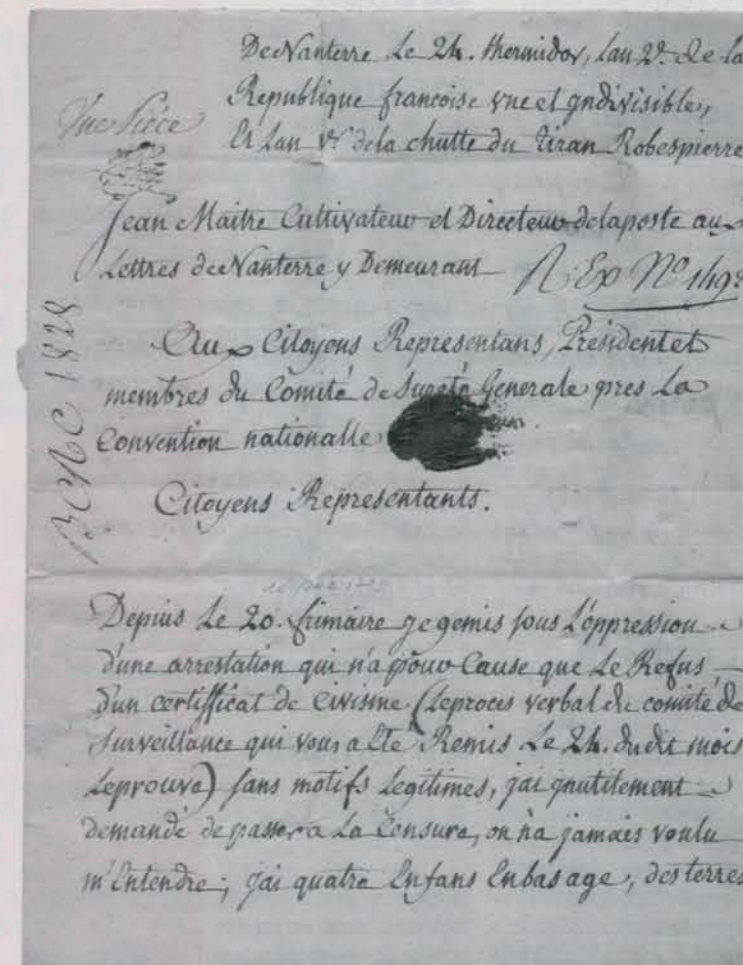 De Nanterre Le 24. thermidor, Lan 2e. de la
Republique francoise vne et yndivisible,
Et Lan 1er. de la chutte du tiran Robespierre
Vne Piéce
Jean Maitre Cultivateur et Directeur de la poste aux
Lettres de Nanterre y Demeurant
R Ex No 1492
BCNC 1828
Aux Citoyens Representans, President et
membres du Comité de Sureté Generale pres La
Convention nationalle
Citoyens Representants.
Depius Le 20. frimaire ge gemis sous L'oppression
d'une arrestation qui n'a pour Cause que Le Refus
d'un certifficat de Civisme. (Le proces verbal du comité de
surveillance qui vous a Eté Remis Le 24. du dit mois
Le prouve) sans motifs Legitimes, jai ynutilement
demandé de passer a La Censure, on na jamais voulu
m'Entendre; jai quatre Enfans En bas age, des terres